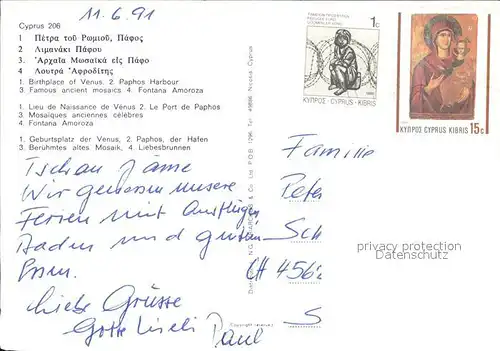 11.6.91
Cyprus 206
1 Πέτρα τοῦ Ρωμιοῦ, Πάφος
2 Λιμανάκι Πάφου
3. Ἀρχαῖα Μωσαϊκά εἰς Πάφο
4 Λουτρά Ἀφροδίτης
1. Birthplace of Venus. 2. Paphos Harbour
3. Famous ancient mosaics 4. Fontana Amoroza
1. Lieu de Naissance de Vénus 2. Le Port de Paphos
3. Mosaïques anciennes célèbres
4. Fontana Amoroza
1. Geburtsplatz der Venus, 2. Paphos, der Hafen
3. Berühmtes altes Mosaik, 4. Liebesbrunnen
Tschau
Wir geniessen unsere
Ferien mit Ausflügen
Baden und gutem
Essen.
Liebe Grüsse
Paul
1c
ΚΥΠΡΟΣ · CYPRUS · KIBRIS
ΚΥΠΡΟΣ CYPRUS KIBRIS 15c
Familie
Peter
Sch
CH 4562
S
privacy protection
Datenschutz
(Copyright reserved)